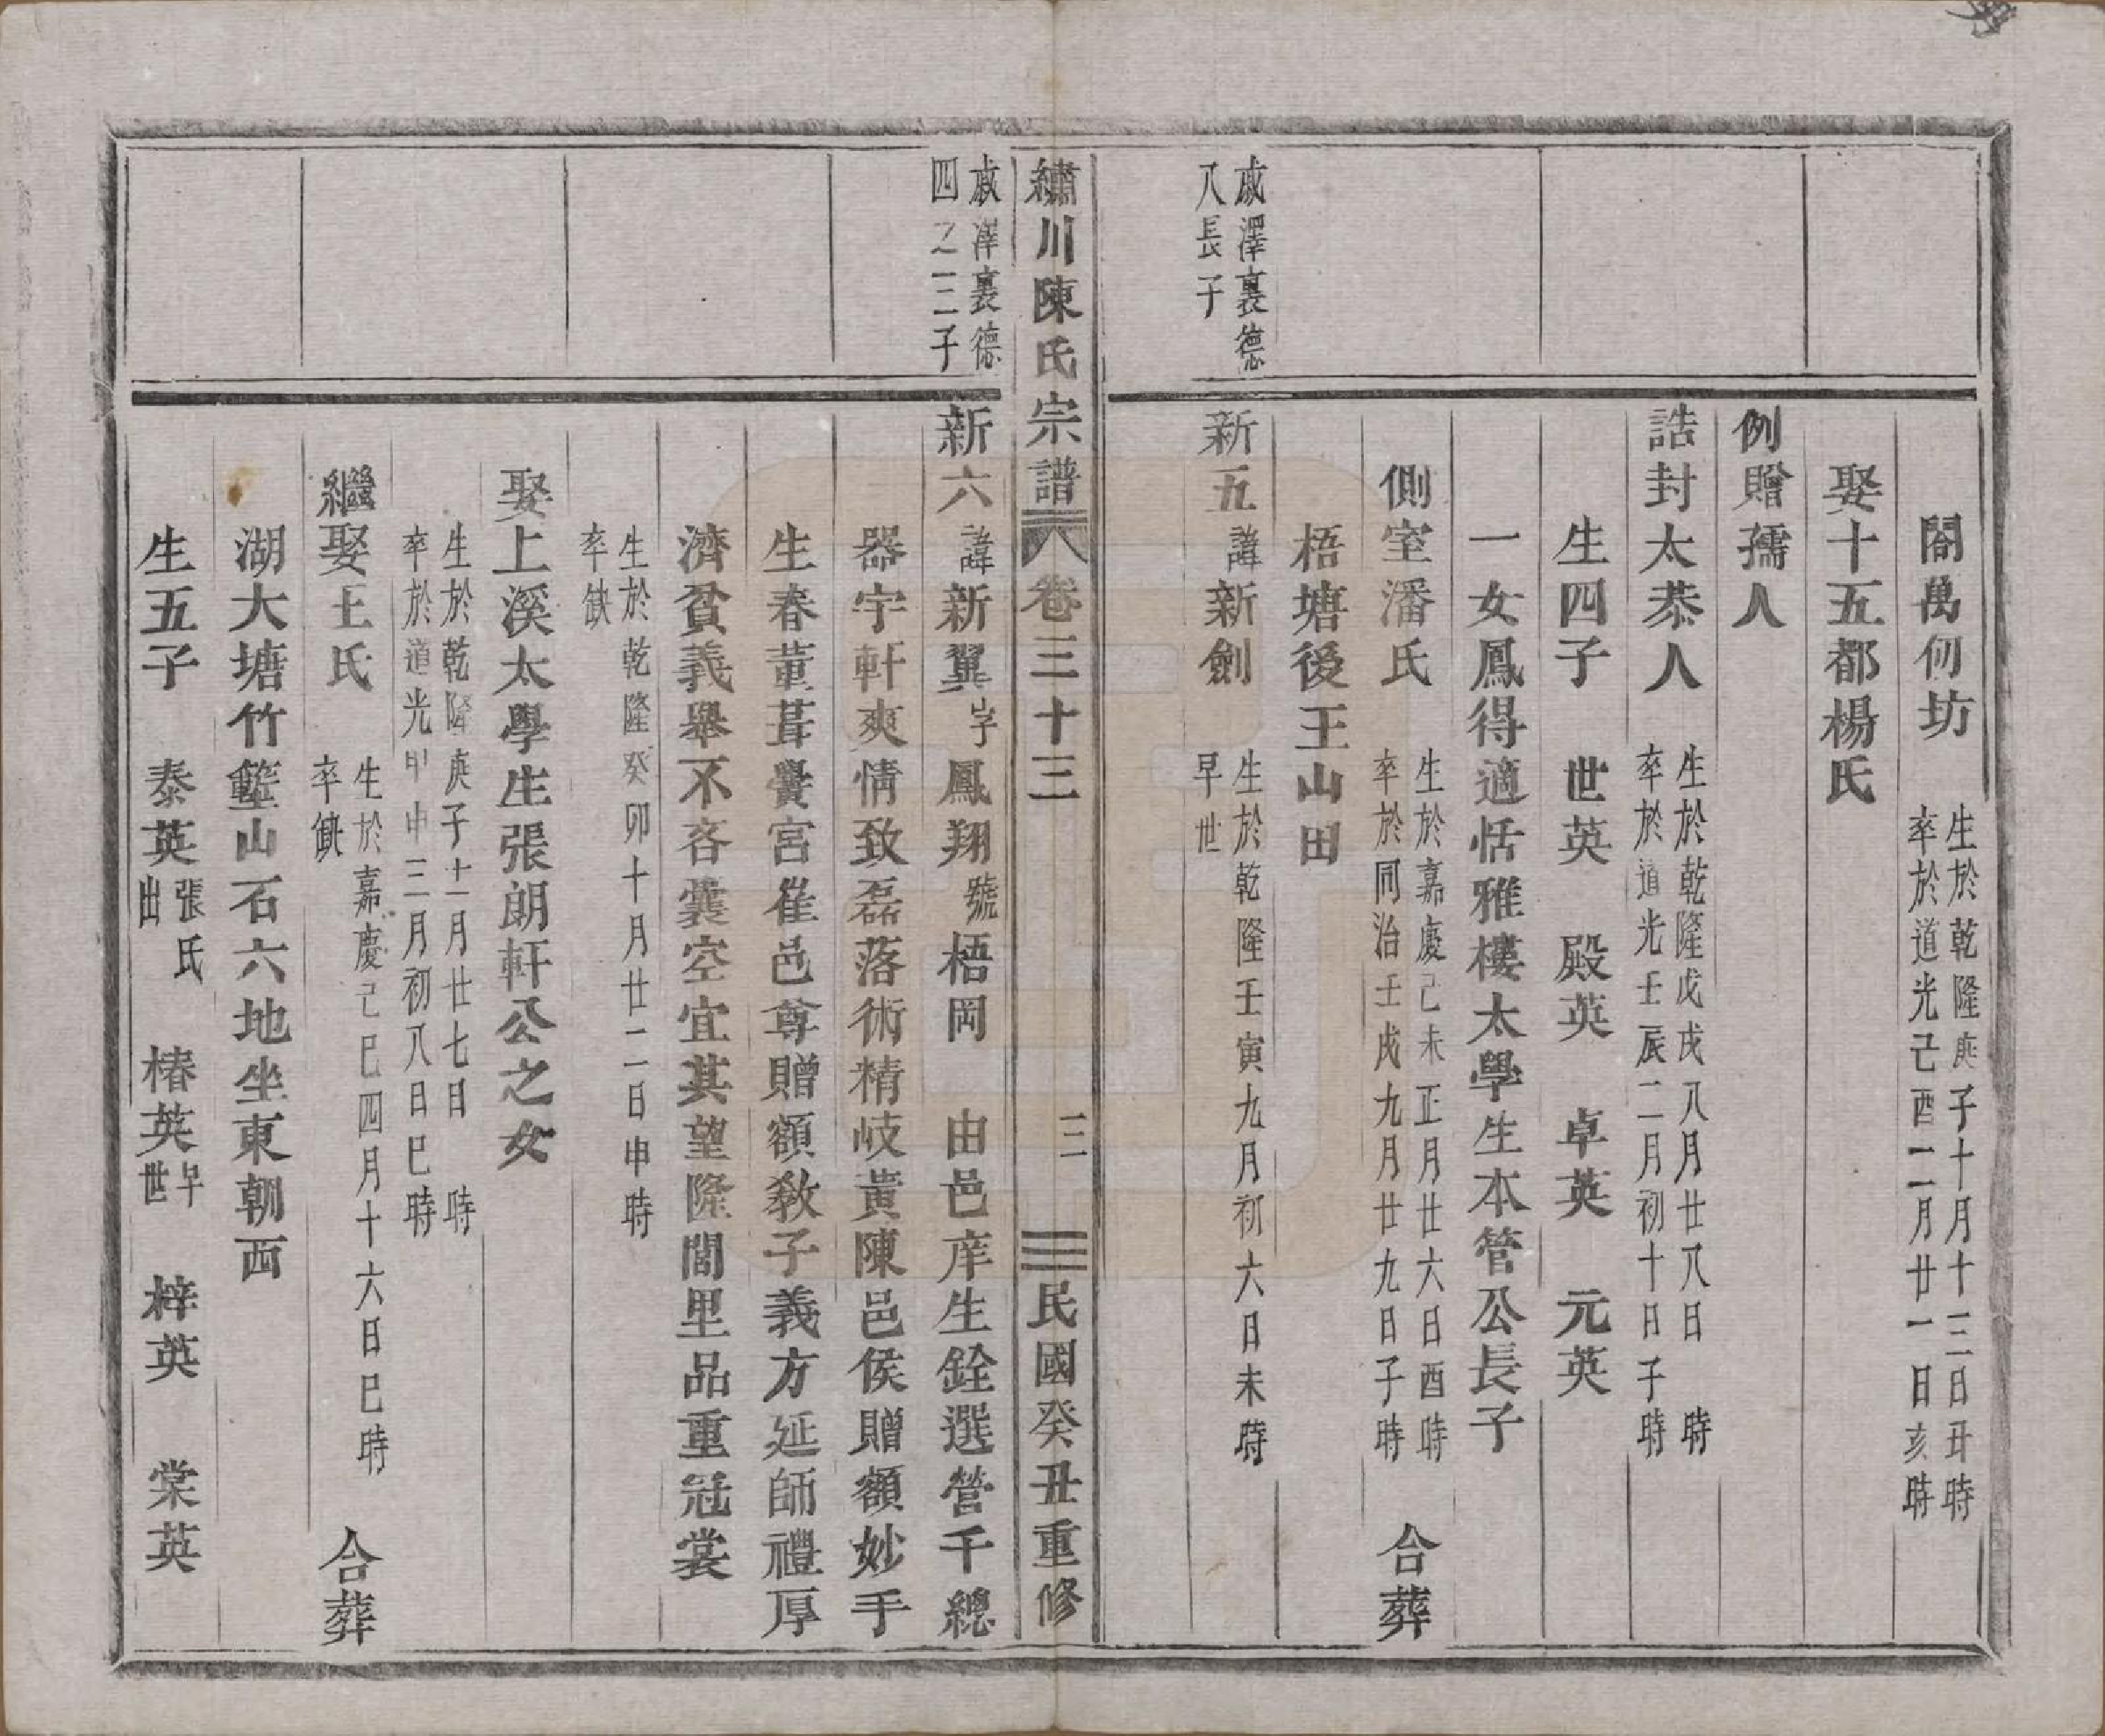 閤萬仞坊
生於乾隆庚子十月十三日丑時
卒於道光己酉二月廿一日亥時
娶十五都楊氏
例贈孺人
誥封太恭人
生於乾隆戊戌八月廿八日時
卒於道光壬辰二月初十日子時
生四子 世英 殿英 卓英 元英
一女鳳得適恬雅樓太學生本管公長子
側室潘氏
生於嘉慶己未正月廿六日酉時
卒於同治壬戌九月廿九日子時
合葬
梧塘後王山田
歲澤裏德
八長子
新五諱新劍
生於乾隆壬寅九月初六日未時
早世
繡川陳氏宗譜 卷三十三 三 民國癸丑重修
歲澤裏德
四之二子
新六諱新翼字鳳翔號梧岡 由邑庠生銓選營千總
器宇軒爽情致磊落術精岐黃陳邑侯贈額妙手
生春董葺黌宮崔邑尊贈額教子義方延師禮厚
濟貧義舉不吝囊空宜其望隆閭里品重冠裳
生於乾隆癸卯十月廿二日申時
卒缺
娶上溪太學生張朗軒公之女
生於乾隆庚子十一月廿七日 時
卒於道光甲申三月初八日巳時
繼娶王氏
生於嘉慶己巳四月十六日巳時
卒缺
合葬
湖大塘竹籃山石六地坐東朝西
生五子 泰英張氏出 椿英早世 梓英 棠英